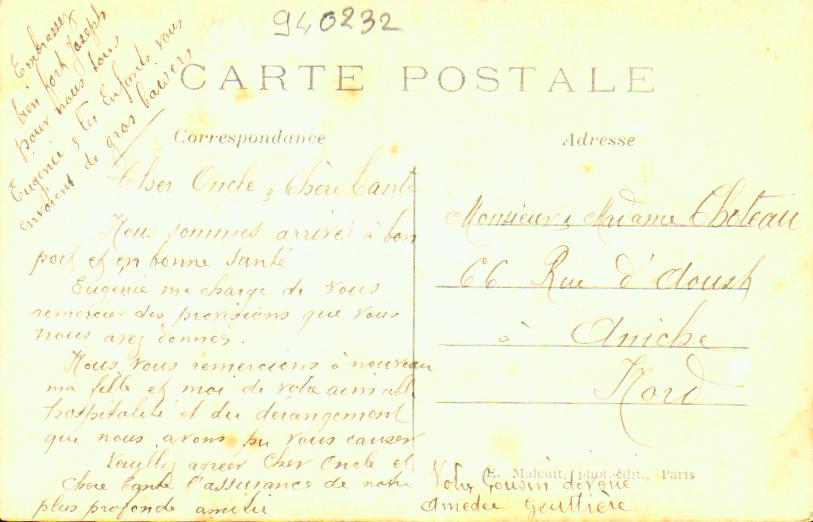 940232
Embrassez
bien fort Joseph
pour nous tous
Eugénie & les Enfants vous
envoient de gros baisers
CARTE POSTALE
Correspondance
Adresse
Cher Oncle & Chère Tante
Nous sommes arrivés à bon
port et en bonne santé
Eugénie me charge de vous
remercier des provisions que vous
nous avez données.
Nous vous remercions à nouveau
ma fille et moi de votre aimable
hospitalité et du dérangement
que nous avons pu vous causer
Veuillez agréer Cher Oncle et
Chère Tante l'assurance de notre
plus profonde amitié
Votre Cousin dévoué
Amédée Gouttière
Monsieur & Madame Choteau
66 Rue d'Aoust
à Aniche
Nord
E. Malcuit, phot.-édit., Paris